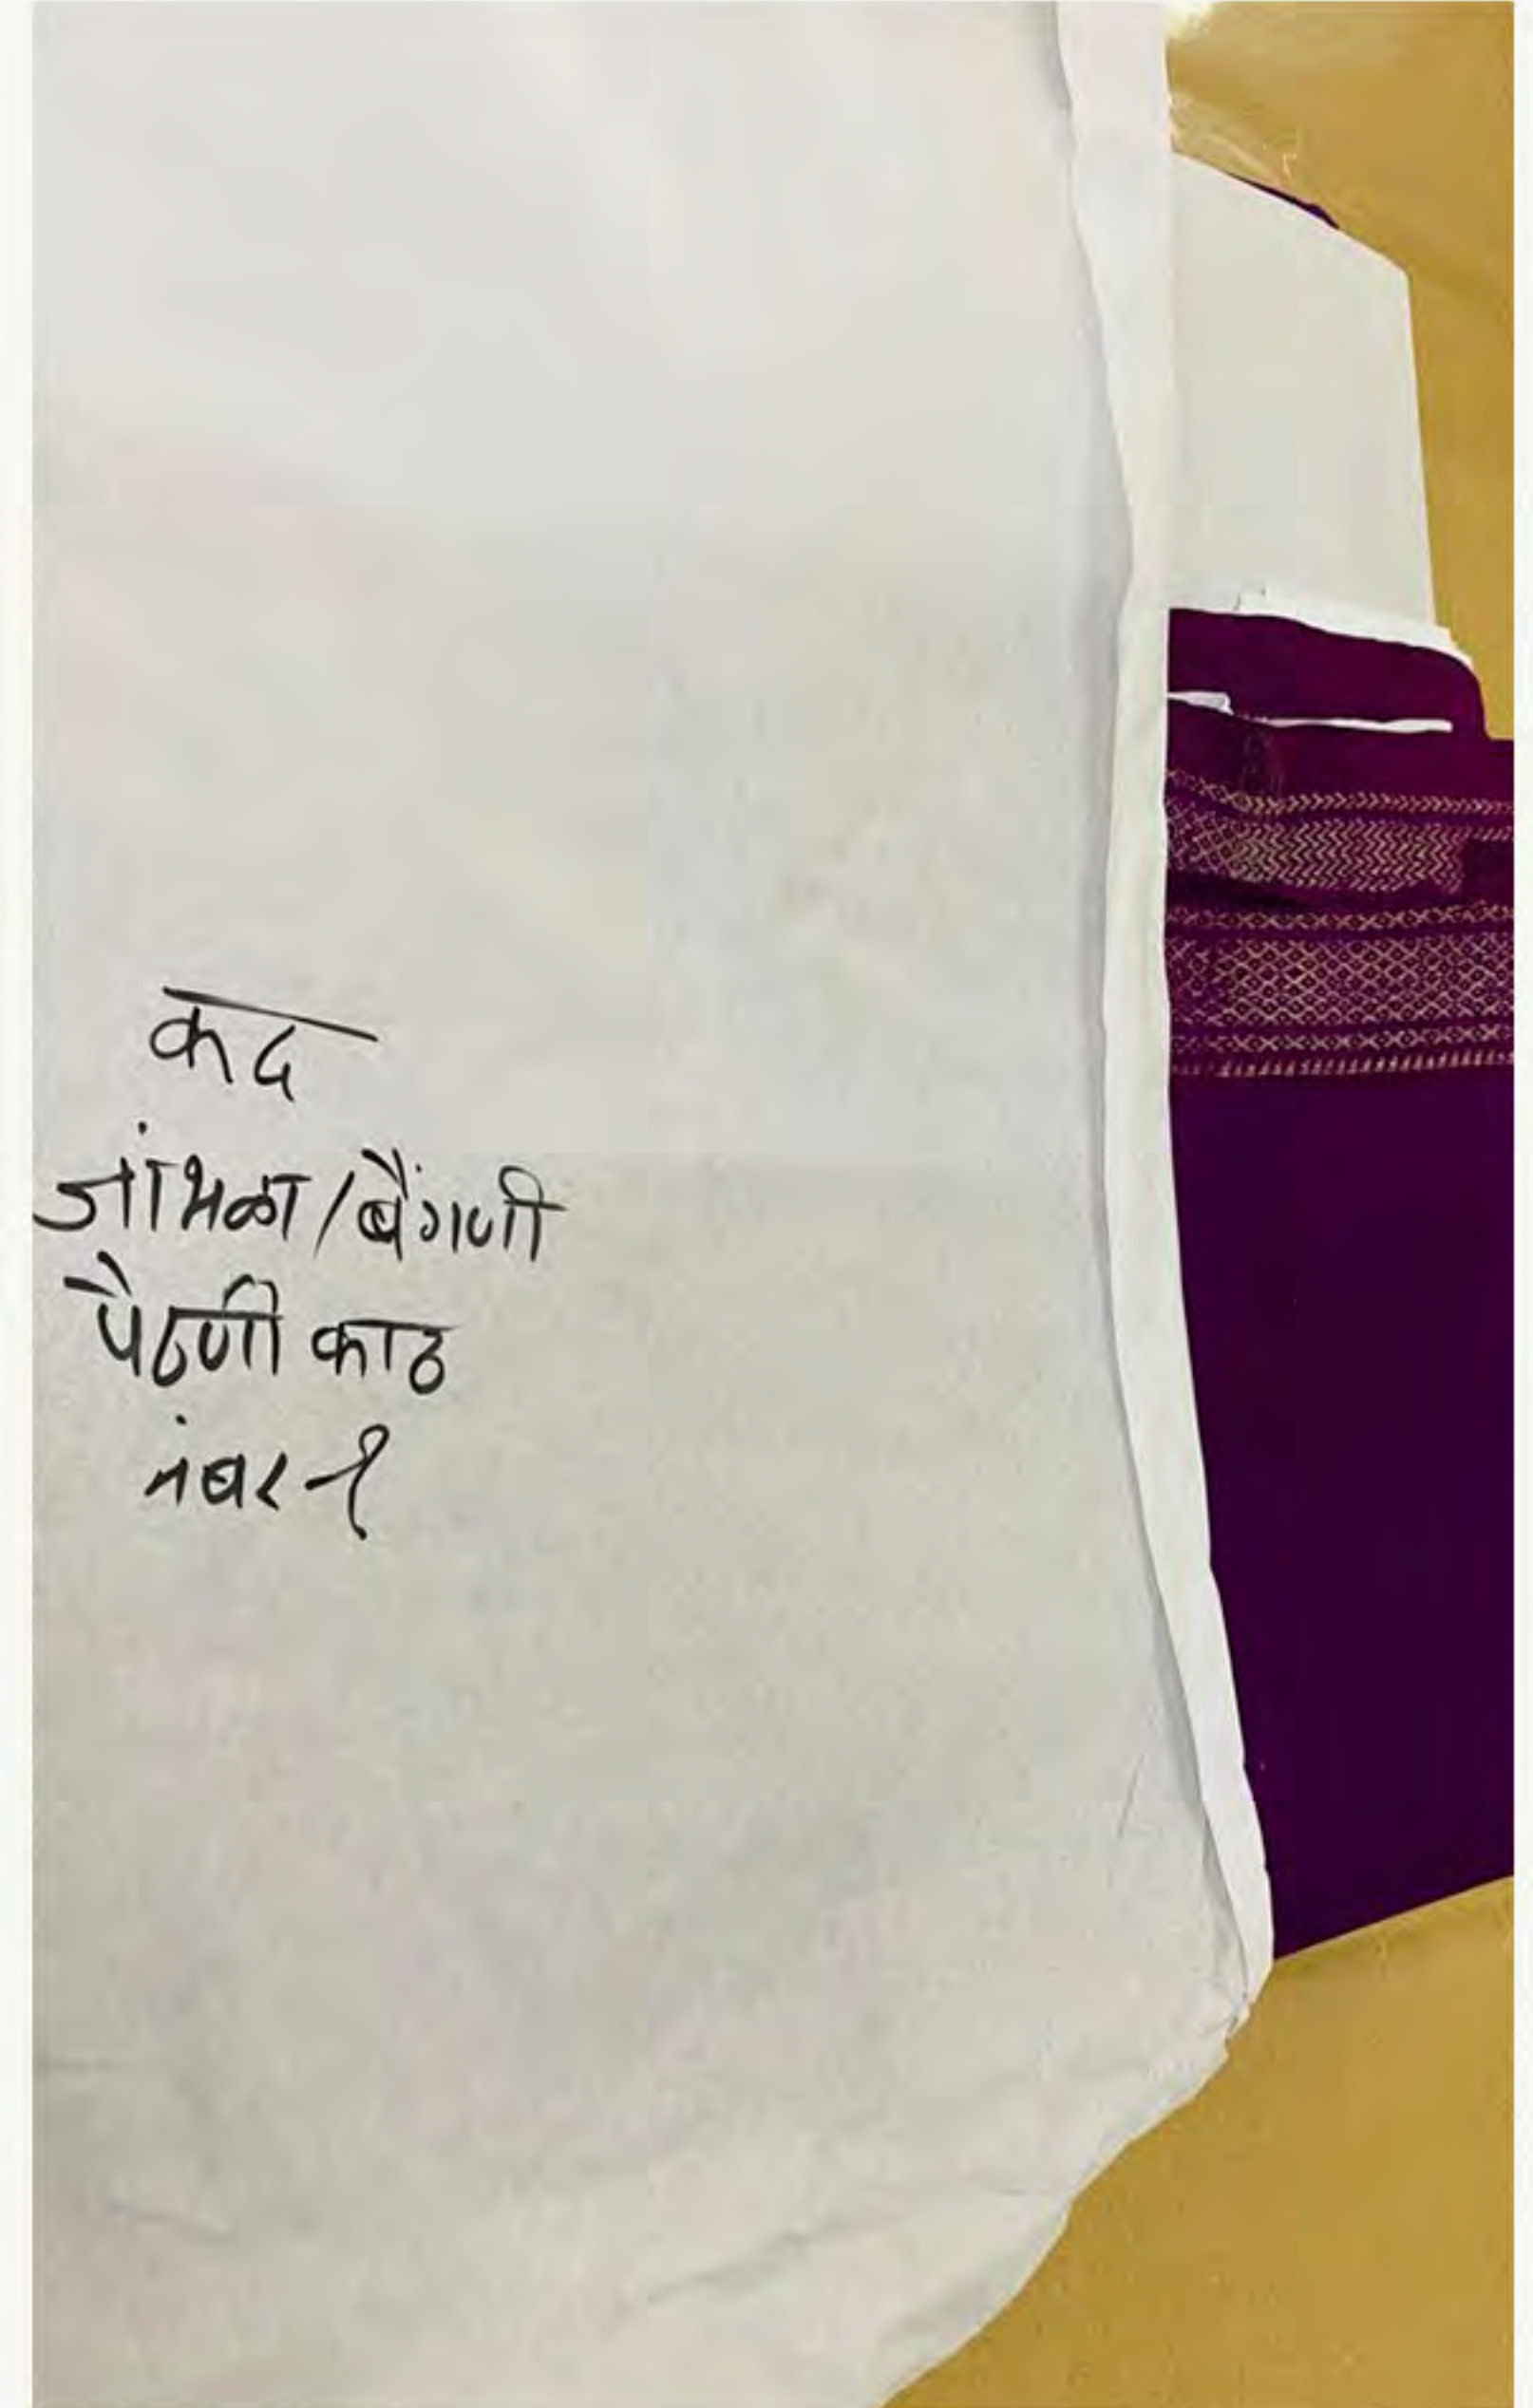 कद
जांभळा/बैंगणी
पैठणी काठ
नंबर-१